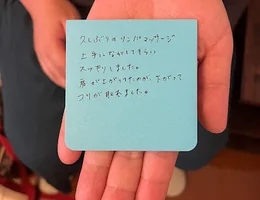 久しぶりのリンパマッサージ
上手にながしてもらい
スッキリしました。
肩が上がらなかったのが、あがって
コリが取れました。